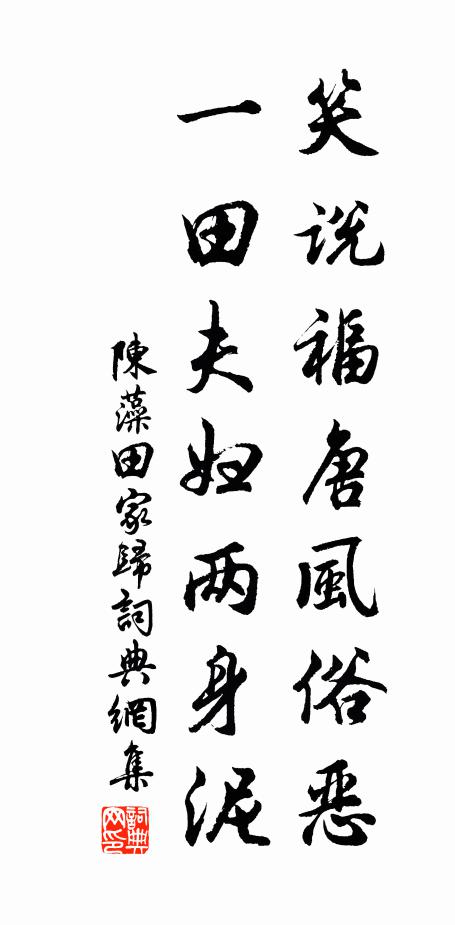 笑説福唐風俗惡
一田夫婦两身泥
陳藻田家歸詞典網集
詞典网印